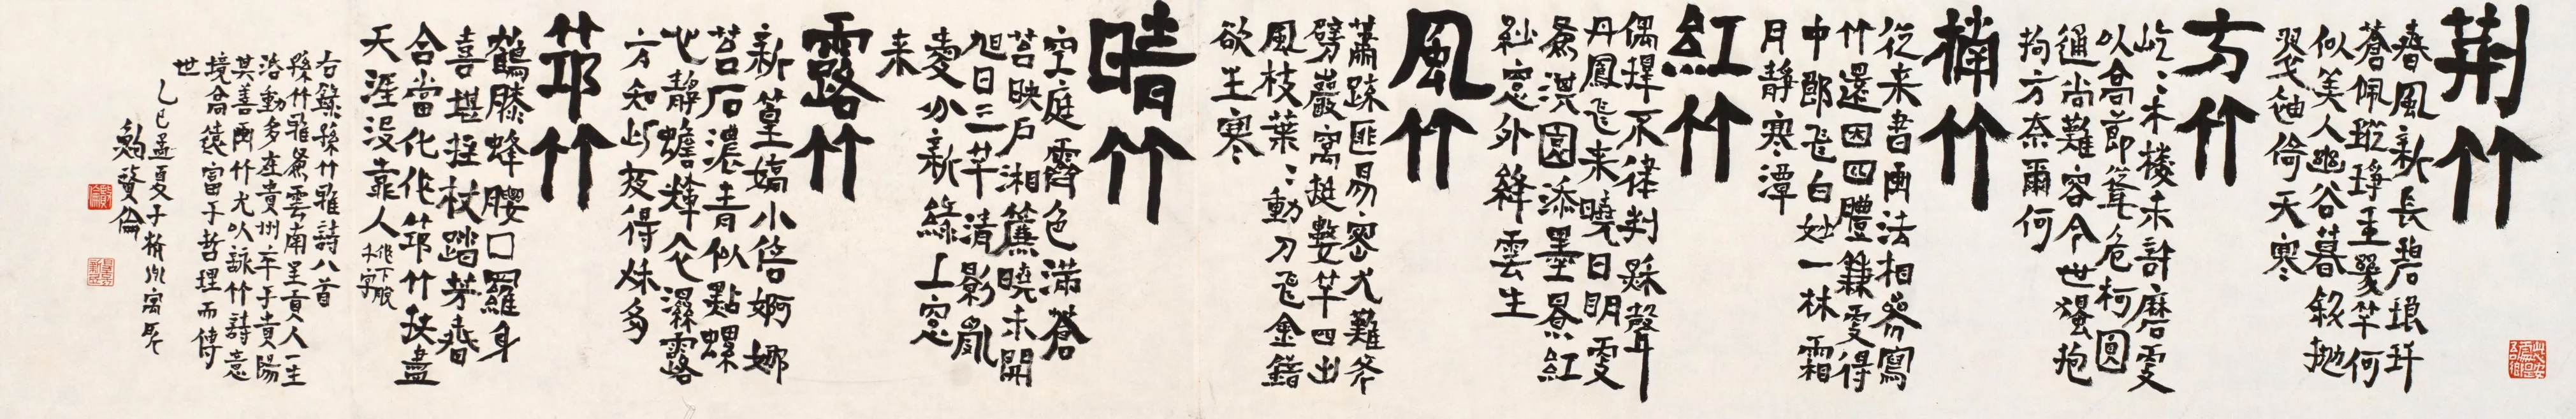 荊竹
春風新長碧琅玕
蒼佩瑽琤玉幾竿何
似美人幽谷暮拋
翠袖倚天寒
方竹
屹屹未棱未許磨更
以高節聳危柯圓
通尚難容今世獨抱
拘方奈爾何
楠竹
從來書畫法相參寫
竹還因四體兼更得
中郎飛白妙一林霜
月靜寒潭
紅竹
偶擇不律判聲
丹鳳飛來曉日明更
為淇園添墨景紅
紗窗外絳雲生
風竹
蕭疎匪易密尤難斧
劈巖窩挺數竿四出
風枝葉葉動刀飛金錯
欲生寒
晴竹
空庭霽色滿蒼
苔映戶湘簾曉未開
旭日三竿清影亂
分新綠上窗
來
露竹
新篁嬌小倍婀娜
苔石濃青似點螺
心靜蟾輝仝濕露
方知此夜得姝多
筇竹
鶴膝蜂腰口羅身
喜堪拄杖踏芳春
合當化作筇竹扶盡
天涯沒靠人
右錄孫竹雅詩八首
孫竹雅為雲南呈貢人一生
活動多在貴州卒于貴陽
其善畫竹尤以詠竹詩意
境高遠富于哲理而傳
世
乙巳孟夏于寓所
贊倫